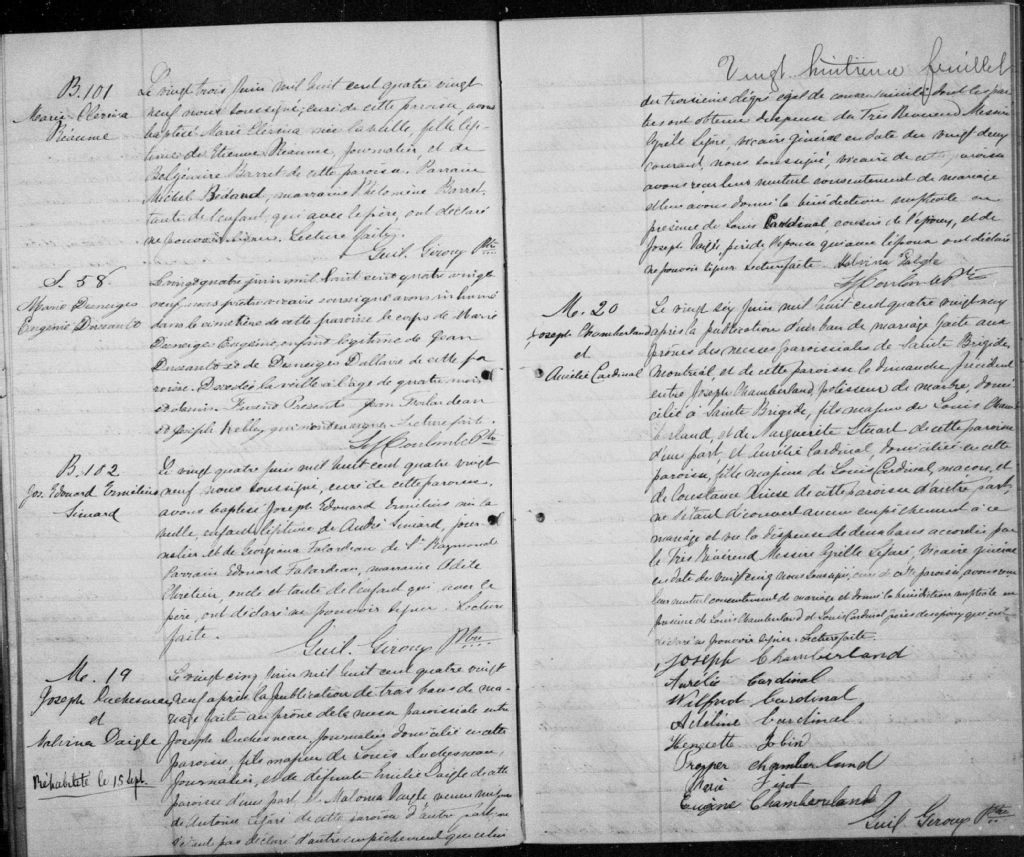 B.101
Marie Clerina
Réaume
Le vingt trois Juin mil huit cent quatre vingt
neuf nous soussigné, curé de cette paroisse avons
baptisé Marie Clerina née la veille, fille légi-
time de Etienne Réaume, journalier, et de
Barret de cette paroisse. Parrain
Michel Bédard, marraine Philomène Barret,
tante de l'enfant, qui avec le père, ont déclaré
ne pouvoir signer. Lecture faite.
Guil. Giroux Ptre
S. 58
Marie Demeiges
Eugénie
Le vingt quatre juin mil huit cent quatre vingt
neuf nous prêtre vicaire soussigné avons inhumé
dans le cimetière de cette paroisse le corps de Marie
Eugénie, enfant légitime de Jean
et de Dallaire de cette pa-
roisse. Décédée la veille à l'âge de quatre mois
et demi. Furent Presents Jean
et Joseph qui n'ont su signer. Lecture faite.
Ptre
B.102
Jos. Edouard Ermilius
Simard
Le vingt quatre Juin mil huit cent quatre vingt
neuf nous soussigné, curé de cette paroisse,
avons baptisé Joseph Edouard Ermilius né la
veille, enfant légitime de André Simard, jour-
nalier et de Georgiana Falardeau de St Raymond
Parrain Edouard Falardeau, marraine Adèle
oncle et tante de l'enfant qui, avec le
père, ont déclaré ne pouvoir signer. Lecture
faite.
Guil. Giroux Ptre
M. 19
Joseph Duchesneau
et
Malvina Daigle
Réhabilité le 15 Sept.
Le vingt cinq Juin mil huit cent quatre vingt
neuf après la publication de trois bans de ma-
riage faite au prône de la messe paroissiale entre
Joseph Duchesneau Journalier domicilié en cette
paroisse, fils majeur de Louis Duchesneau,
Journalier, et de défunte Emilie Daigle de cette
paroisse d'une part, et Malvina Daigle, veuve majeure
de Antoine Légaré de cette paroisse d'autre part, ne
s'étant pas déclaré d'autre empêchement que celui
Vingt huitième feuillet
du troisième dégré égal de consanguinité dont les par-
ties ont obtenu dispense du Très Révérend Messire
Cyrille Légaré, vicaire général en date du vingt deux
courant, nous soussigné, vicaire de cette paroisse
avons reçu leur mutuel consentement de mariage
et leur avons donné la bénédiction nuptiale en
présence de Louis Cardinal cousin de l'époux, et de
Joseph Daigle, père de l'épouse qui avec l'époux ont déclaré
ne pouvoir signer Lecture faite. Malvina Daigle
Ptre
M. 20
Joseph Chamberland
et
Aurélie Cardinal
Le vingt six Juin mil huit cent quatre vingt neuf
après la publication d'un ban de mariage faite aux
prônes des messes paroissiales de Sainte Brigide,
Montréal et de cette paroisse le dimanche précédent
entre Joseph Chamberland, polisseur de marbre, domi-
cilié à Sainte Brigide, fils majeur de Louis Cham-
berland, et de Marguerite Stuart de cette paroisse
d'un part, et Aurélie Cardinal, domiciliée en cette
paroisse, fille majeure de Louis Cardinal, maçon, et
de Constance de cette paroisse d'autre part,
ne s'étant découvert aucun empêchement à ce
mariage et vu la dispense de deux bans accordée par
le Très Révérend Messire Cyrille Légaré, Vicaire général
en date du vingt cinq nous soussigné, curé de cette paroisse, avons reçu
leur mutuel consentement de mariage et donné la bénédiction nuptiale en
présence de Louis Chamberland et Louis Cardinal, pères des époux qui ont
déclaré ne pouvoir signer. Lecture faite.
Joseph Chamberland
Aurélie Cardinal
Wilfrid Cardinal
Adéline Cardinal
Henriette Jobin
Prosper Chamberland
Eugène Chamberland
Guil. Giroux Ptre